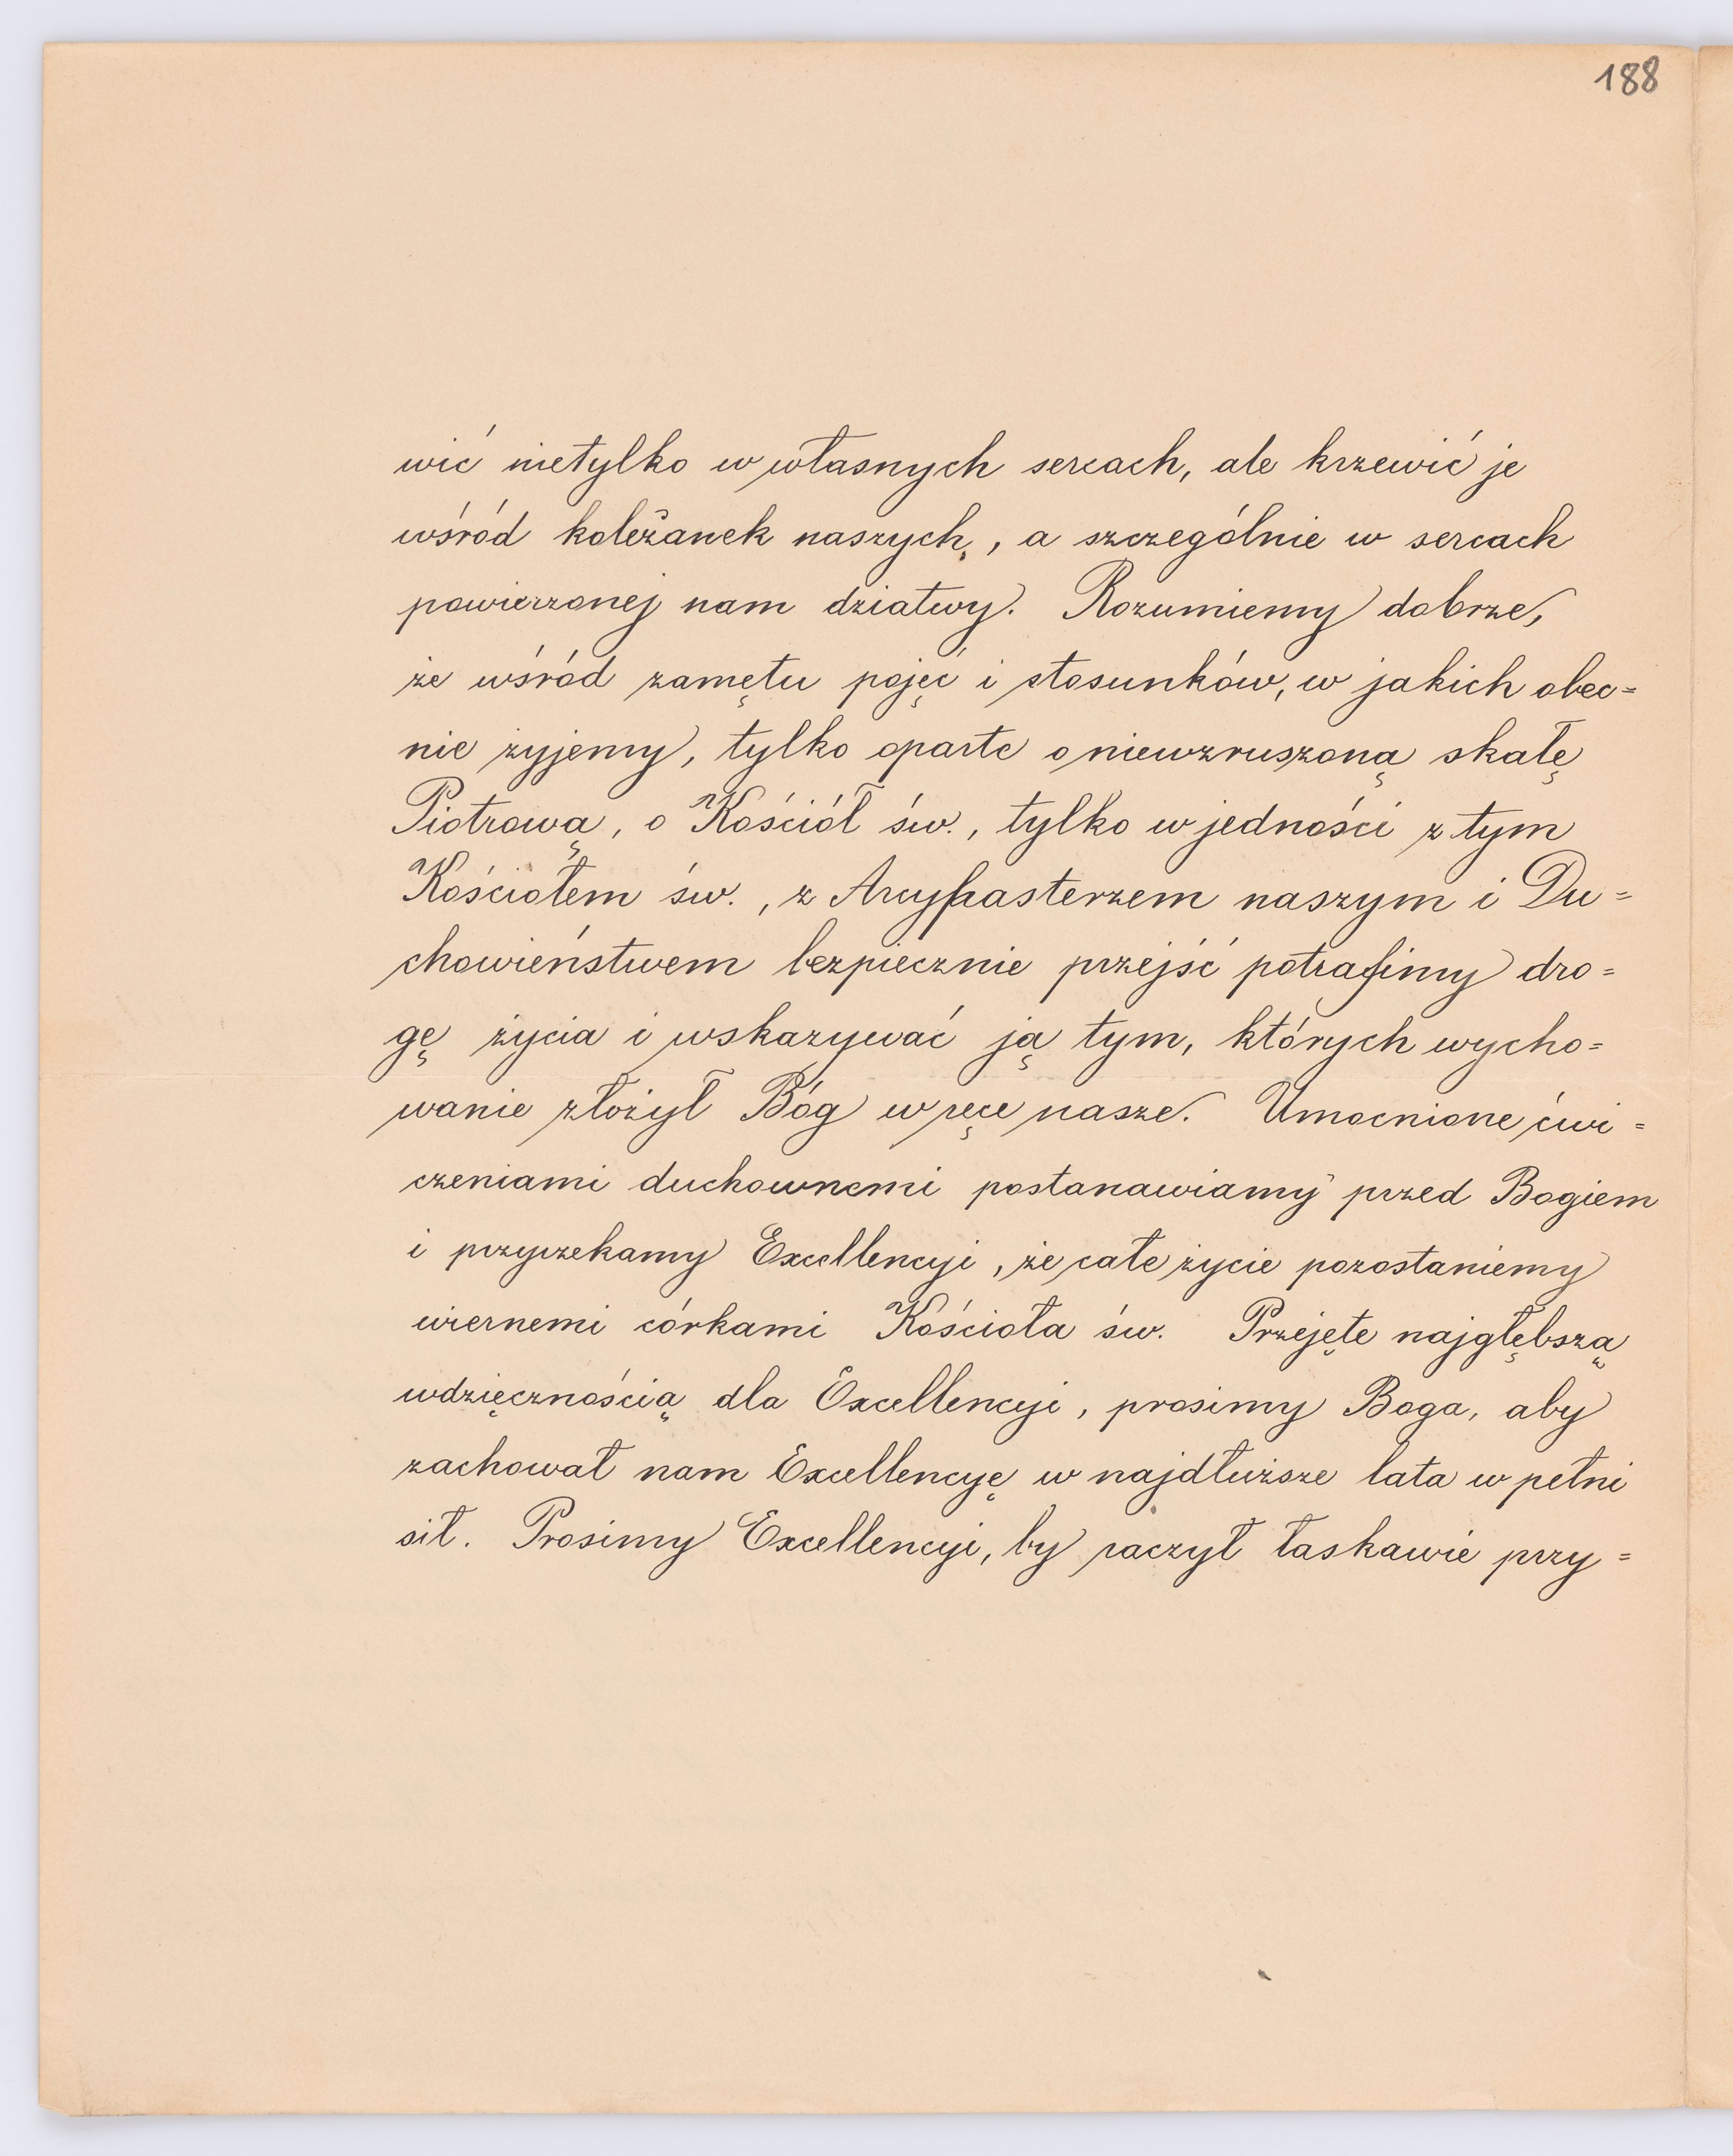 188
wić nietylko w własnych sercach, ale krzewić je
wśród koleżanek naszych, a szczególnie w sercach
powierzonej nam dziatwy. Rozumiemy dobrze,
że wśród zamętu pojęć i stosunków, w jakich obec=
nie żyjemy, tylko oparte o niewzruszoną skałę
Piotrową, o Kościół św., tylko w jedności z tym
Kościołem św., z Arcypasterzem naszym i Du=
chowieństwem bezpiecznie przejść potrafimy dro=
gę życia i wskazywać ją tym, których wycho=
wanie złożył Bóg w ręce nasze. Umocnione ćwi=
czeniami duchownemi postanawiamy przed Bogiem
i przyrzekamy Excellencyi, że całe życie pozostaniemy
wiernemi córkami Kościoła św. Przejęte najgłębszą
wdzięcznością dla Excellencyi, prosimy Boga, aby
zachował nam Excellencyę w najdłuższe lata w pełni
sił. Prosimy Excellencyi, by raczył łaskawie przy=